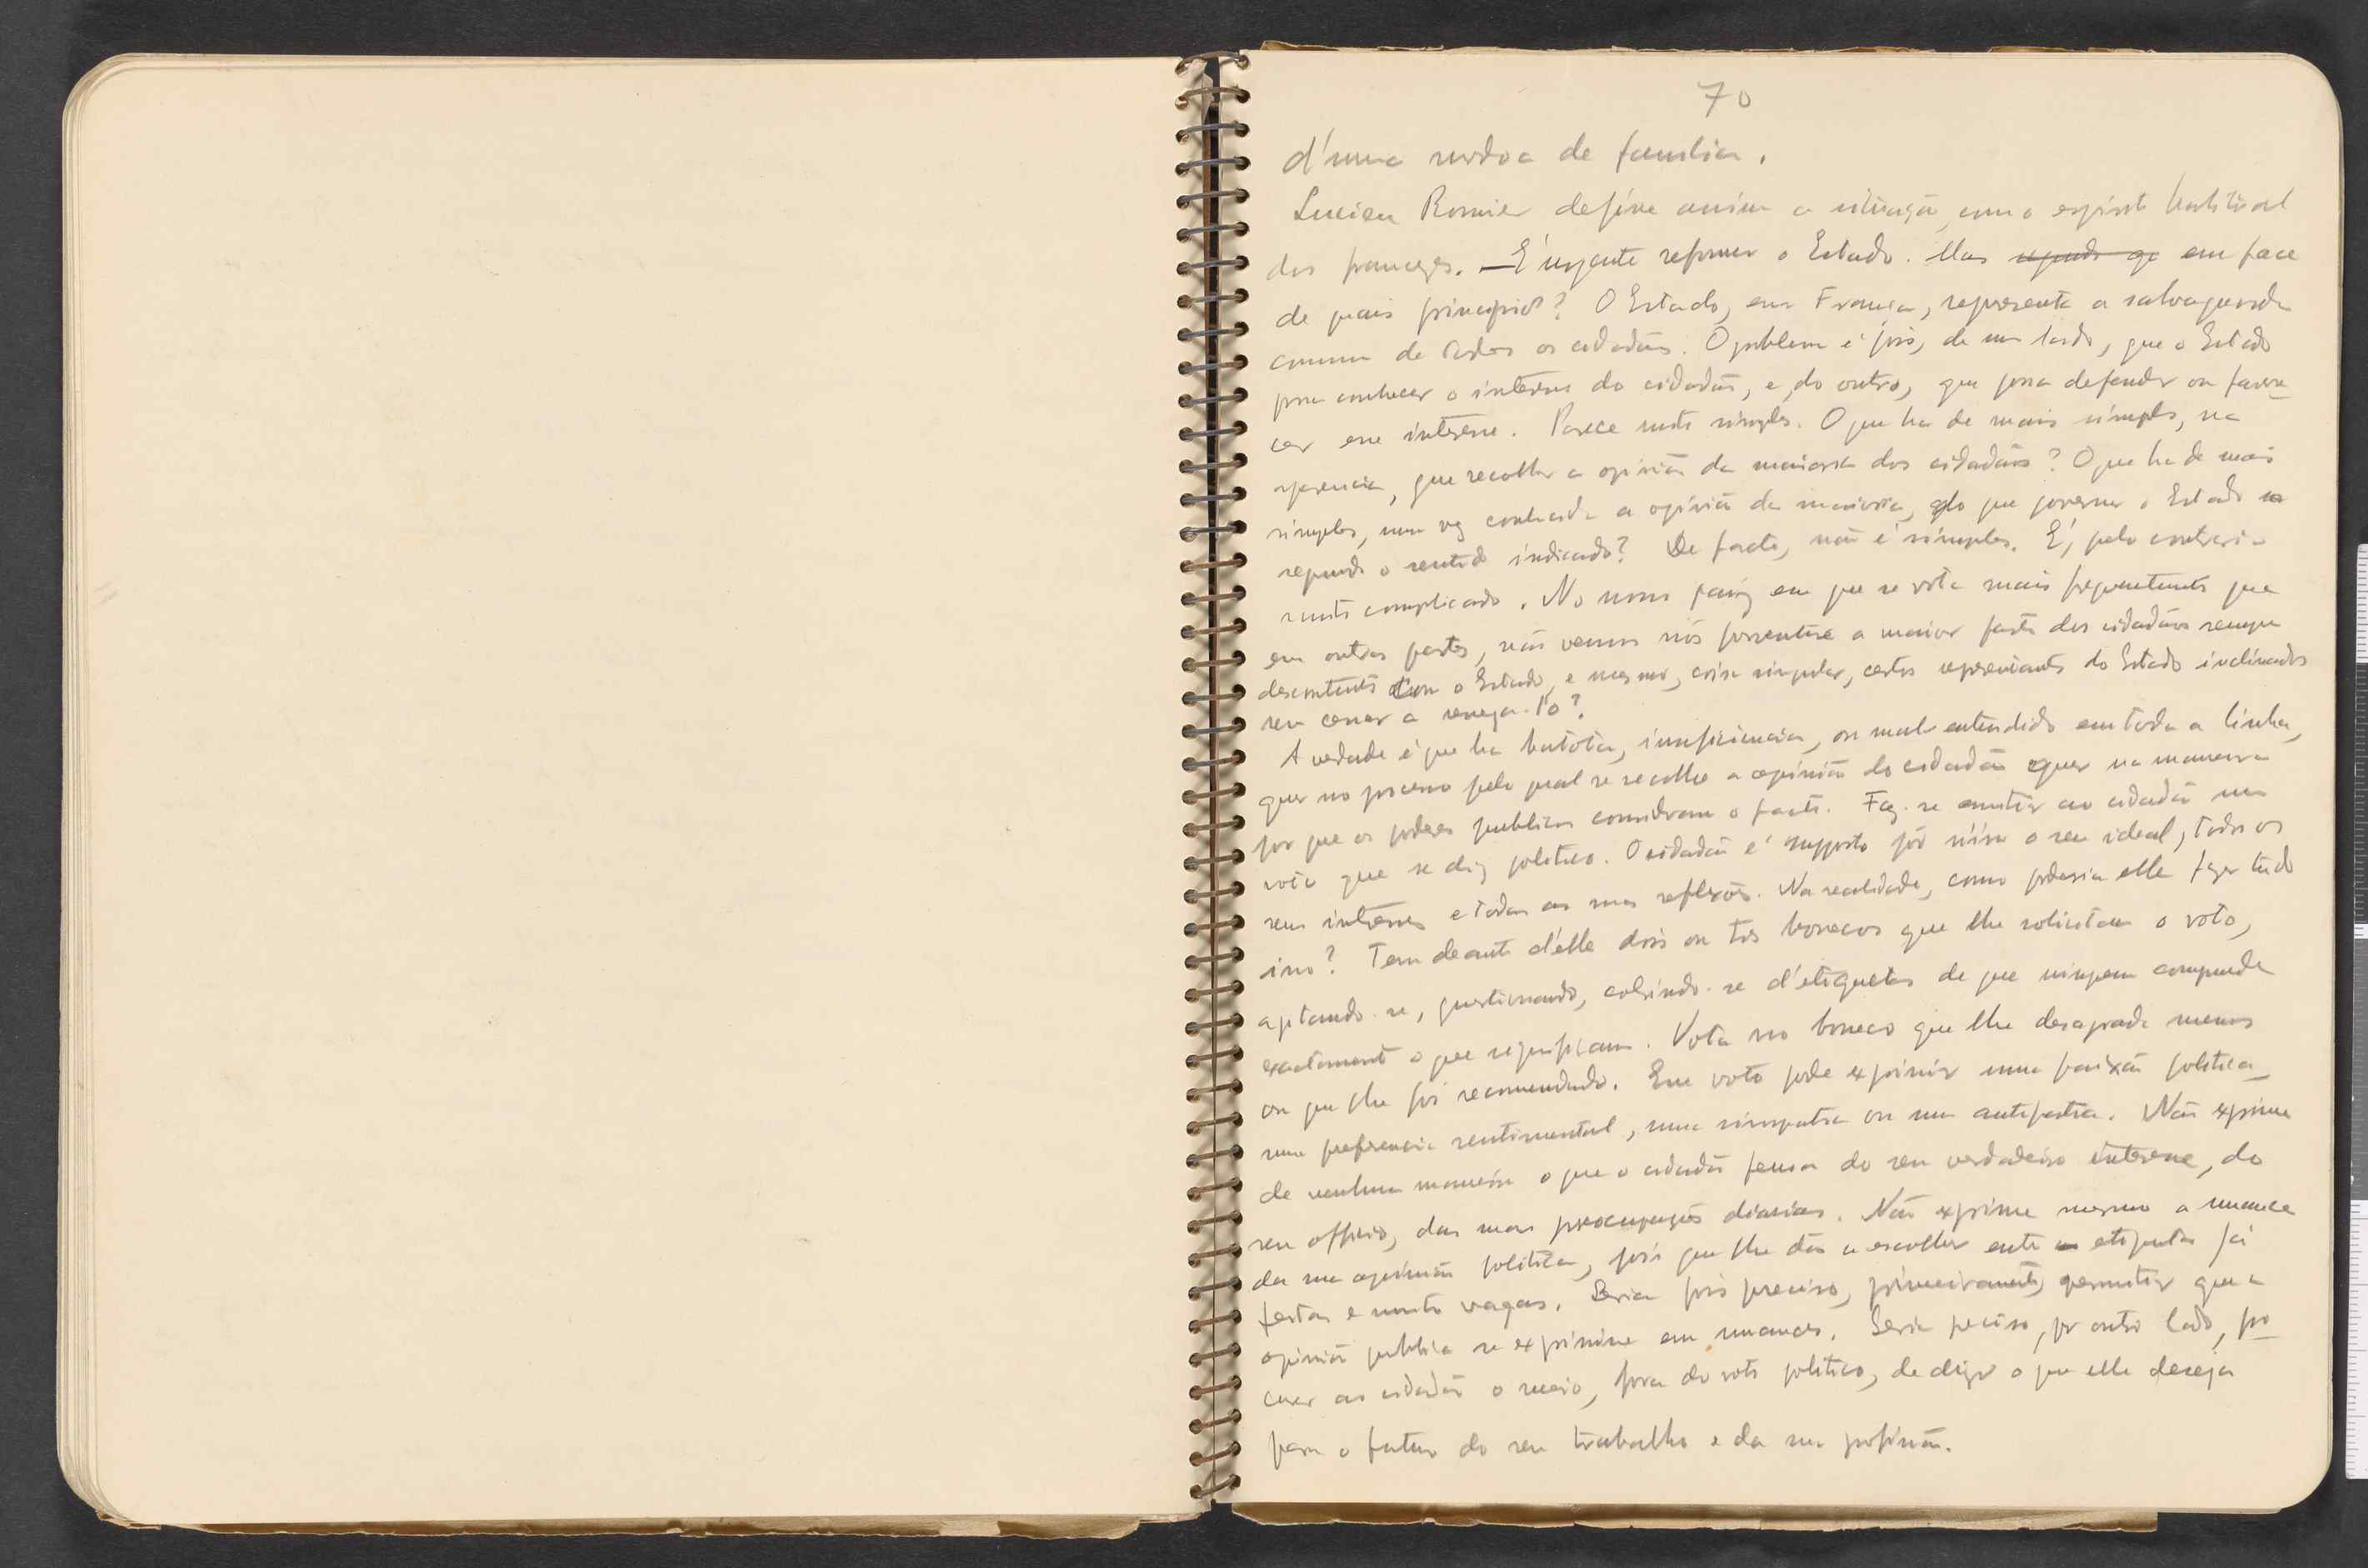 70
d'uma surdoa de familia.
Lucien Romier define assim a situação, com o espirito habitual
dos francezes. — É urgente reformar o Estado. Mas segundo que em face
de quais principios? O Estado, em França, representa a salvaguarda
comum de todos os cidadãos. O problema é pois, de um lado, que o Estado
possa conhecer o interesse do cidadão, e, do outro, que possa defender ou favore-
cer esse interesse. Parece muito simples. O que ha de mais simples, na
aparencia, que recolher a opinião da maioria dos cidadãos? O que ha de mais
simples, uma vez conhecida a opinião da maioria, do que governar o Estado
segundo o sentido indicado? De facto, não é simples. É, pelo contrario
muito complicado. No nosso paiz em que se vota mais frequentemente que
em outras partes, não vemos nós porventura a maior parte dos cidadãos sempre
descontentes com o Estado, e mesmo, coisa singular, certos representantes do Estado inclinados
sem cessar a renega-l'o?
A verdade é que ha batota, insuficiencia, ou mal entendido em toda a linha,
quer no processo pelo qual se recolhe a opinião do cidadão quer na maneira
por que os poderes publicos consideram o facto. Faz-se emitir ao cidadão um
voto que se diz politico. O cidadão é supposto pôr n'isso o seu ideal, todos os
seus interesses e todas as suas reflexões. Na realidade, como poderia elle fazer tudo
isso? Tem deante d'elle dois ou tres bonecos que lhe solicitam o voto,
agitando-se, questionando, cobrindo-se d'etiquetas de que ninguem comprehende
exactamente o que significam. Vota no boneco que lhe desagrada menos
ou que lhe foi recomendado. Esse voto pode exprimir uma paixão politica,
uma preferencia sentimental, uma simpatia ou uma antipatia. Não exprime
de nenhuma maneira o que o cidadão pensa do seu verdadeiro interesse, do
seu officio, das suas preocupações diarias. Não exprime mesmo a nuance
da sua opinião politica, pois que lhe dão a escolher entre etiquetas já
feitas e muito vagas. Seria pois preciso, primeiramente, permitir que a
opinião publica se exprimisse em nuances. Seria preciso, por outro lado, for-
necer ao cidadão o meio, fora do voto politico, de dizer o que elle deseja
para o futuro do seu trabalho e da sua profissão.